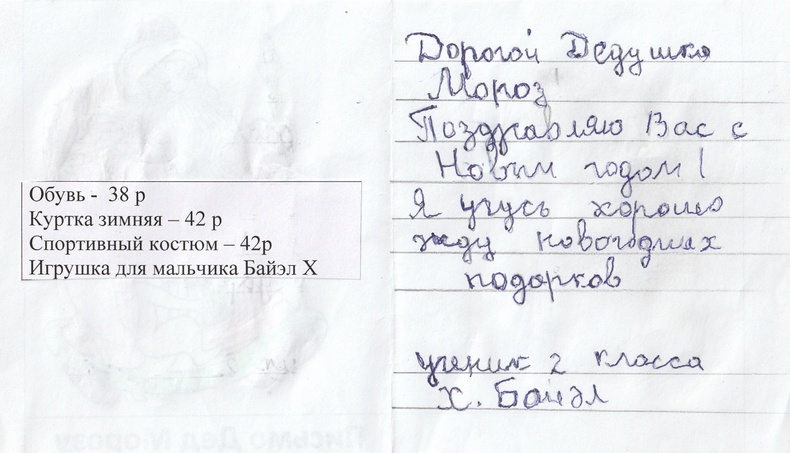 Обувь - 38 р
Куртка зимняя – 42 р
Спортивный костюм – 42р
Игрушка для мальчика Байэл Х
Дорогой Дедушка
Мороз
Поздравляю Вас с
Новым годом!
Я учусь хорошо
жду новогодних
подарков
ученик 2 класса
Х. Байэл
Письмо Дед Морозу